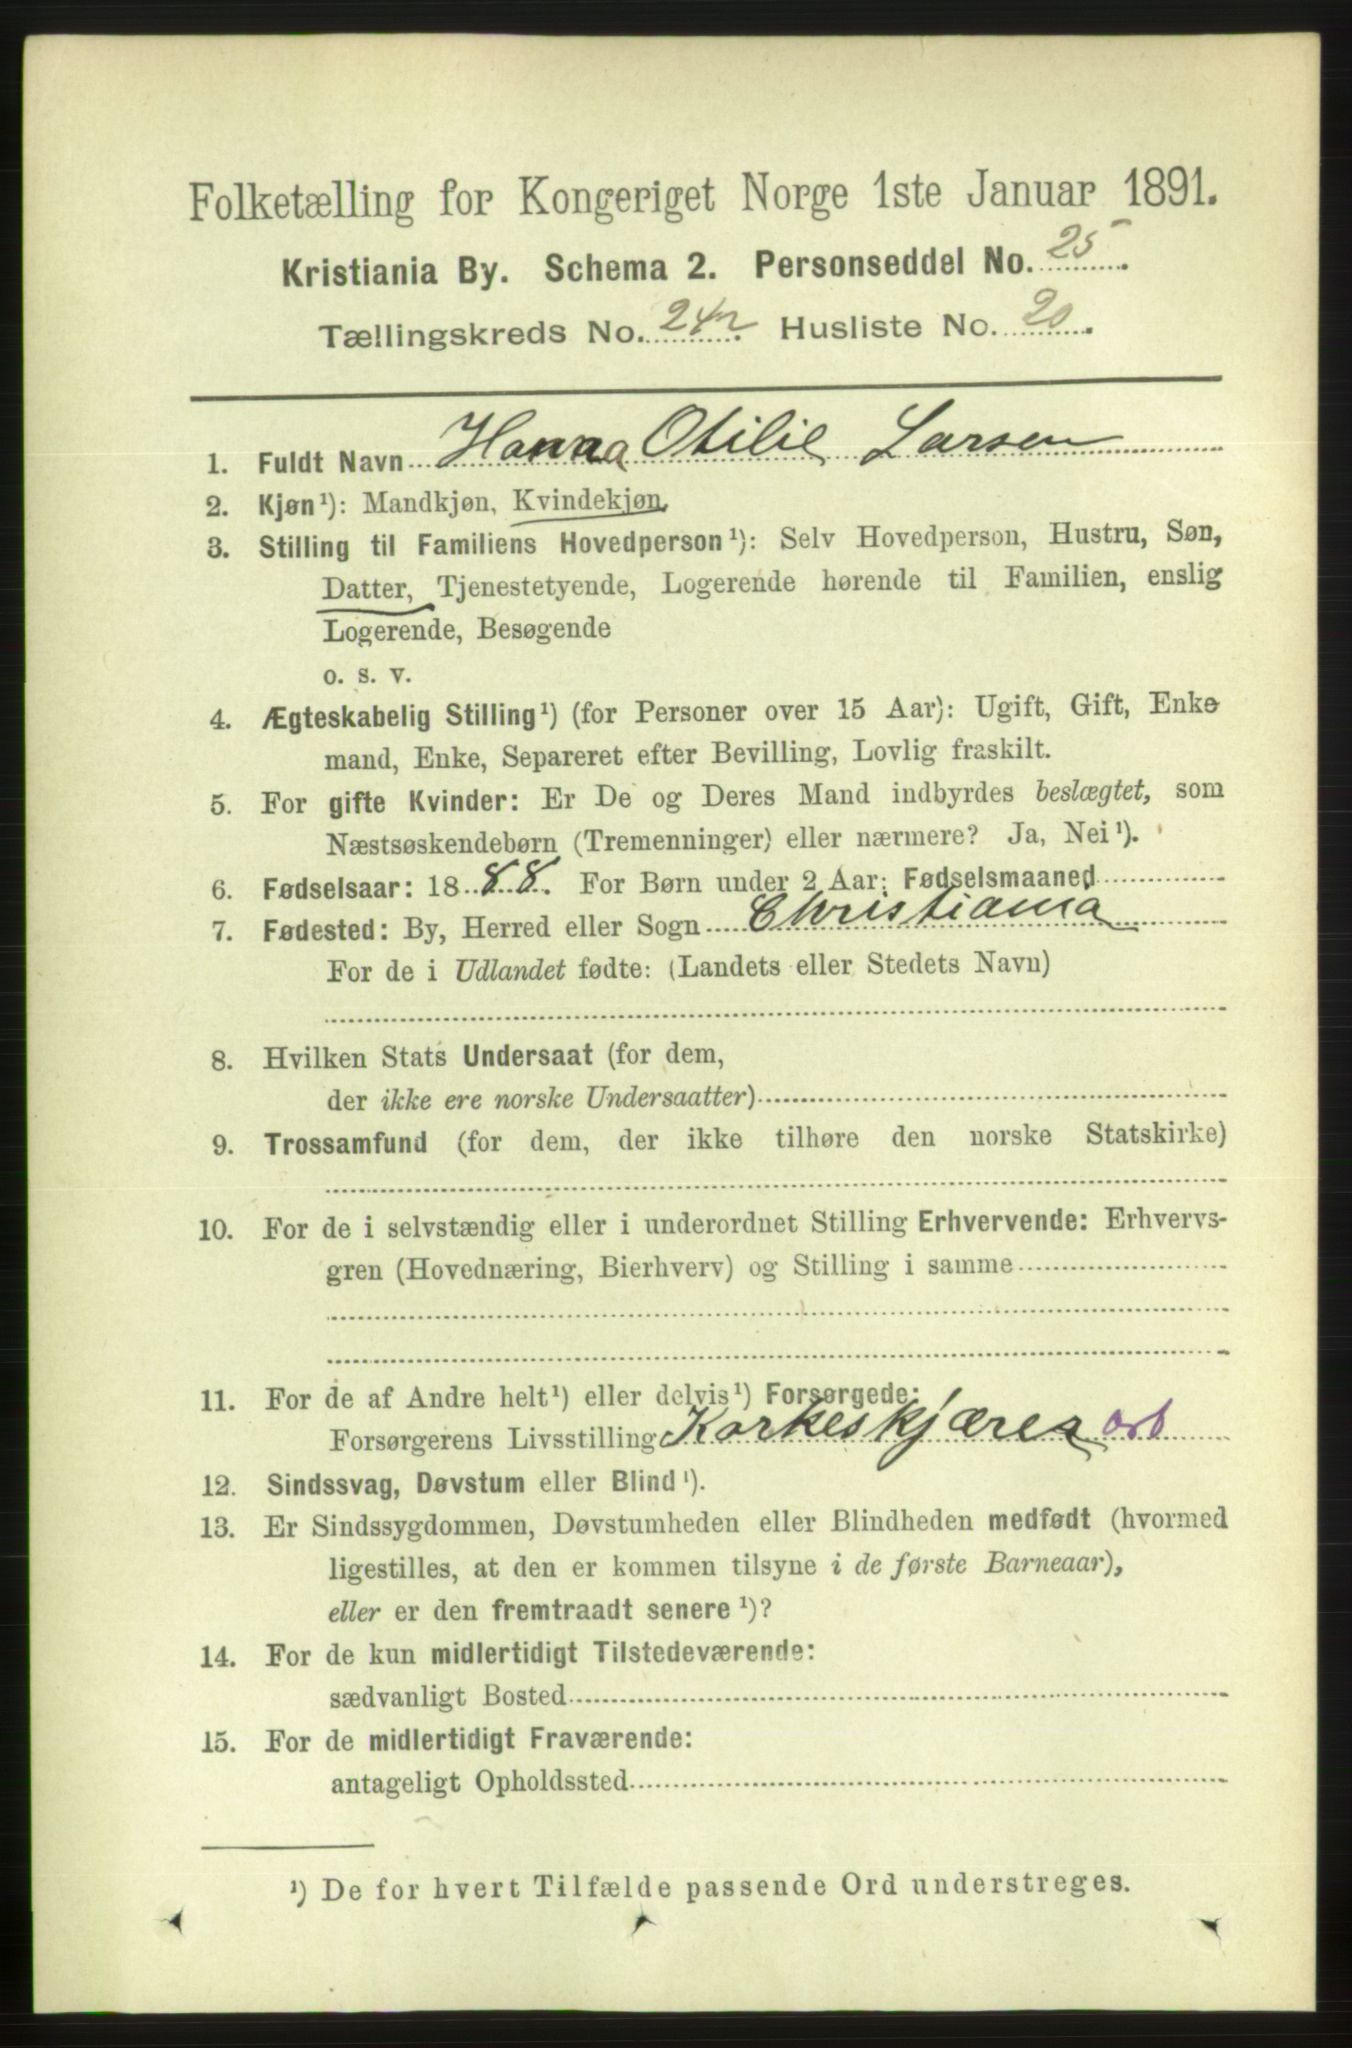 Folketælling for Kongeriget Norge 1ste Januar 1891.
Kristiania By. Schema 2. Personseddel No. 25.
Tællingskreds No. 242. Husliste No. 20.
1. Fuldt Navn Hanna Otilie Larsen
2. Kjøn¹): Mandkjøn, Kvindekjøn.
3. Stilling til Familiens Hovedperson¹): Selv Hovedperson, Hustru, Søn,
Datter, Tjenestetyende, Logerende hørende til Familien, enslig
Logerende, Besøgende
o. s. v.
4. Ægteskabelig Stilling¹) (for Personer over 15 Aar): Ugift, Gift, Enke-
mand, Enke, Separeret efter Bevilling, Lovlig fraskilt.
5. For gifte Kvinder: Er De og Deres Mand indbyrdes beslægtet, som
Næstsøskendebørn (Tremenninger) eller nærmere? Ja, Nei¹).
6. Fødselsaar: 1888. For Børn under 2 Aar: Fødselsmaaned
7. Fødested: By, Herred eller Sogn Christiania
For de i Udlandet fødte: (Landets eller Stedets Navn)
8. Hvilken Stats Undersaat (for dem,
der ikke ere norske Undersaatter)
9. Trossamfund (for dem, der ikke tilhøre den norske Statskirke)
10. For de i selvstændig eller i underordnet Stilling Erhvervende: Erhvervs-
gren (Hovednæring, Bierhverv) og Stilling i samme
11. For de af Andre helt¹) eller delvis¹) Forsørgede:
Forsørgerens Livsstilling Korkeskjærer arb
12. Sindssvag, Døvstum eller Blind¹).
13. Er Sindssygdommen, Døvstumheden eller Blindheden medfødt (hvormed
ligestilles, at den er kommen tilsyne i de første Barneaar),
eller er den fremtraadt senere¹)?
14. For de kun midlertidigt Tilstedeværende:
sædvanligt Bosted
15. For de midlertidigt Fraværende:
antageligt Opholdssted
¹) De for hvert Tilfælde passende Ord understreges.